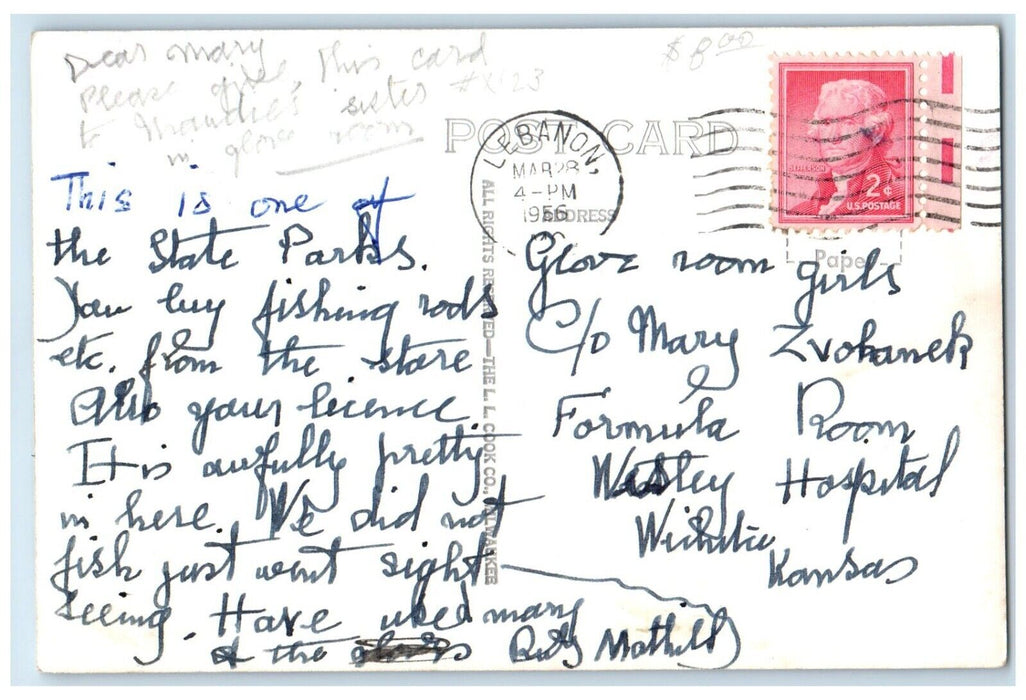 Dear Mary
Please give this card
to Maudie's sister #x123
in glove room
$8.00
POST CARD
LEBANON,
MAR 28
4-PM
1956
ADDRESS
JEFFERSON
2¢
U.S. POSTAGE
Paper
ALL RIGHTS RESERVED—THE L. L. COOK CO., MILWAUKEE
This is one of
the State Parks.
You buy fishing rods
etc. from the store
Also your licence
It is awfully pretty
in here. We did not
fish just went sight
seeing. Have used many
of the gloves
Mathilda
Glove room girls
C/o Mary Zvohanek
Formula Room
Wesley Hospital
Wichita
Kansas